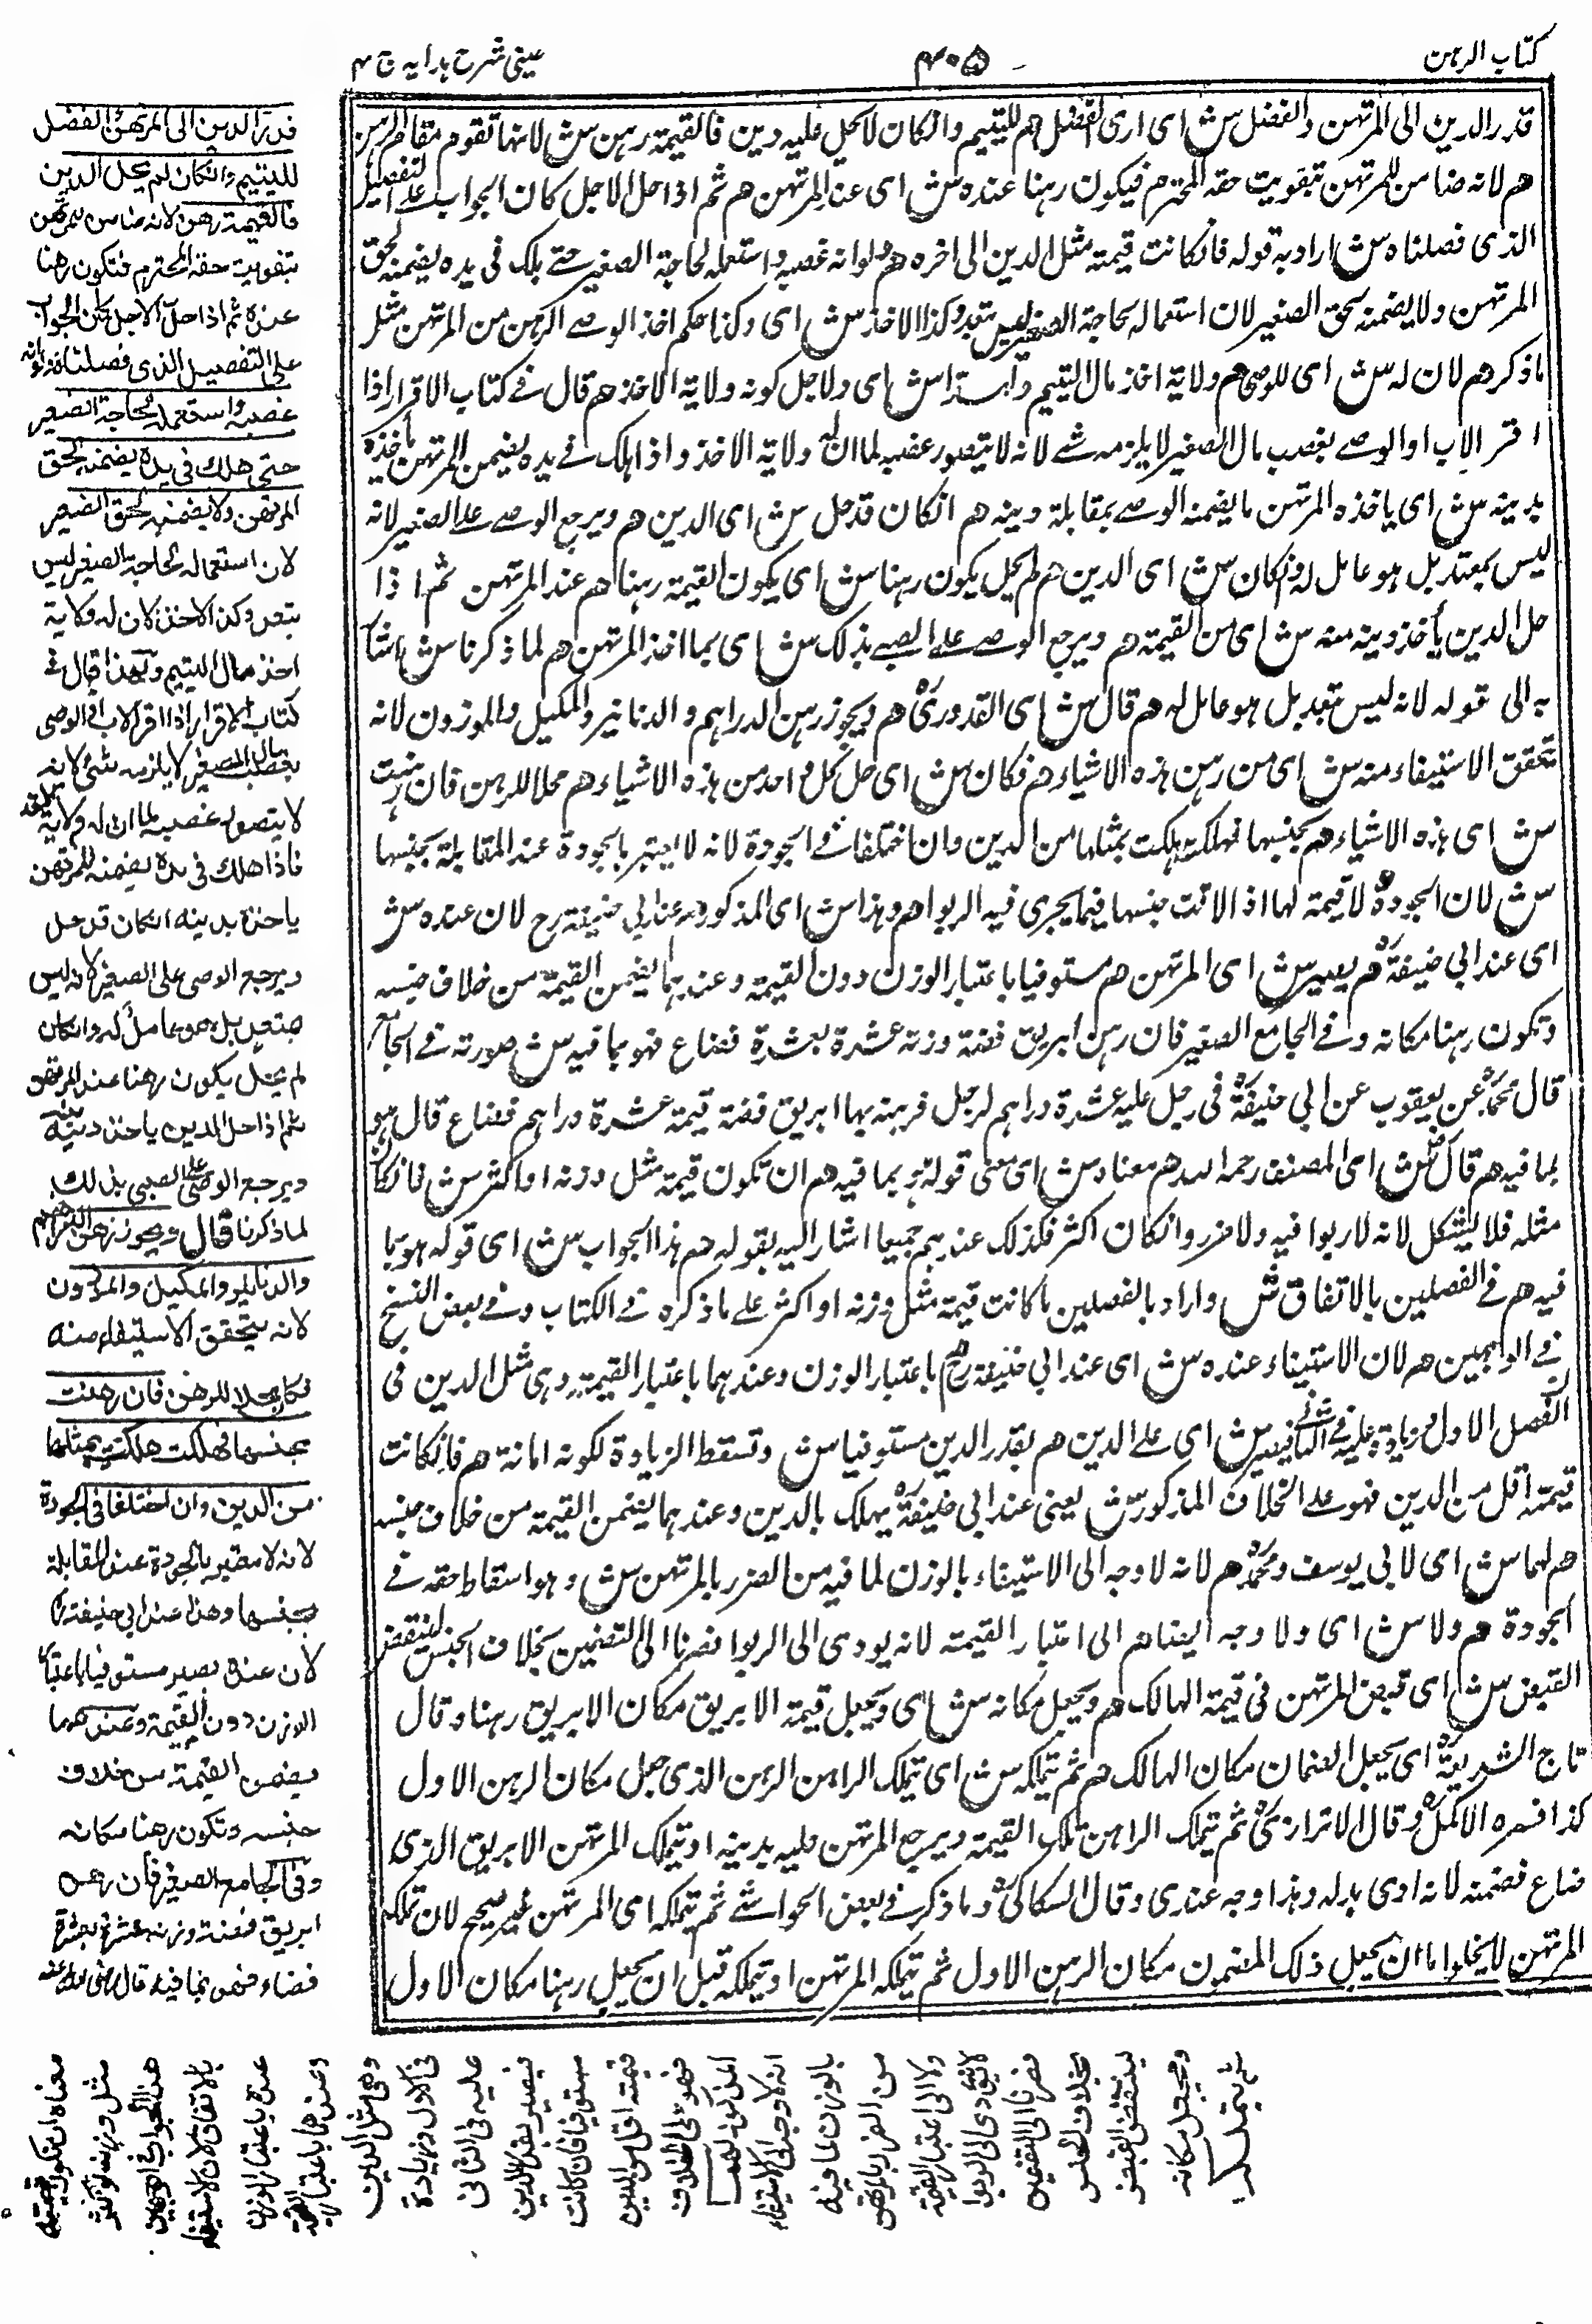 كتاب الرهن
۴۰۵
عینی شرح ہدایہ ج ۴
قدر الدين الى المرتهن والفضل ش اى ارى الفضل هم لليتيم وانكان لا يحل عليه دين فالقيمة رهن ش لانها تقوم مقام الرهن
هم لانه ضامن للمرتهن بتفويت حقه المحترم فيكون رهنا عنده ش اى عند المرتهن هم ثم اذا حل الاجل كان الجواب على التفصيل
الذى فصلناه ش اراد به قوله فانكانت قيمته مثل الدين الى اخره هم ولو انه غصبه واستعمله لحاجة الصغير حتى هلك فى يده يضمنه لحق
المرتهن ولا يضمنه لحق الصغير لان استعماله لحاجة الصغير ليس بتعد وكذا الاخذ ش اى وكذا حكم اخذ الوصى الرهن من المرتهن مثل
ما ذكر هم لان له ش اى للوصى هم ولاية اخذ مال اليتيم ولهذا ش اى ولاجل كونه ولاية الاخذ هم قال فى كتاب الاقرار اذا
اقر الاب او الوصى بغصب مال الصغير لا يلزمه شئ لانه لا يتصور غصبه لما ان له ولاية الاخذ واذا هلك فى يده يضمن للمرتهن ياخذه
بدينه ش اى ياخذه المرتهن ما يضمنه الوصى بمقابلة دينه هم انكان قد حل ش اى الدين هم ويرجع الوصى على الصغير لانه
ليس بمعتد بل هو عامل له وانكان ش اى الدين هم لم يحل يكون رهنا ش اى يكون القيمة رهنا هم عند المرتهن ثم اذا
حل الدين يأخذ دينه منه ش اى من القيمة هم ويرجع الوصى على الصبى بذلك ش اى بما اخذ المرتهن هم لما ذكرنا ش اشار
به الى قوله لانه ليس بتعد بل هو عامل له هم قال ش اى القدورى هم ويجوز رهن الدراهم والدنانير والمكيل والموزون لانه
يتحقق الاستيفاء منه ش اى من رهن هذه الاشياء هم فكان ش اى حل كل واحد من هذه الاشياء هم محلا للرهن فان رهنت
ش اى هذه الاشياء هم بجنسها فهلكت هلكت بمثلها من الدين وان اختلفا فى الجودة لانه لا يعتبر بالجودة عند المقابلة بجنسها
ش لان الجودة لا قيمة لها اذا لاقت جنسها فيما يجرى فيه الربوا هم وهذا ش اى المذكور هم عند ابى حنيفة رح لان عنده ش
اى عند ابى حنيفة هم يصير ش اى المرتهن هم مستوفيا باعتبار الوزن دون القيمة وعندهما يضمن القيمة من خلاف جنسه
وتكون رهنا مكانه وفى الجامع الصغير فان رهن ابريق فضة وزنه عشرة بعشرة فضاع فهو بما فيه ش صورته فى الجامع
قال محمد عن يعقوب عن ابى حنيفة فى رجل عليه عشرة دراهم لرجل فرهنه بها ابريق فضة قيمته عشرة دراهم فضاع قال هو
بما فيه هم قال ش اى المصنف رحمه الله هم معناه ش اى معنى قوله هو بما فيه هم ان تكون قيمته مثل وزنه او اكثر ش فانكان
مثله فلا يشكل لانه لا ربوا فيه ولا ضرر وانكان اكثر فكذلك عندهم جميعا اشار اليه بقوله هم هذا الجواب ش اى قوله هو بما
فيه هم فى الفصلين بالاتفاق ش واراد بالفصلين ما كانت قيمته مثل وزنه او اكثر على ما ذكره فى الكتاب وفى بعض النسخ
فى الوجهين هم لان الاستيفاء عنده ش اى عند ابى حنيفة باعتبار الوزن وعندهما باعتبار القيمة وهى مثل الدين فى
الفصل الاول وزيادة عليه فى الثانى فيصير ش اى على الدين هم بقدر الدين مستوفيا ش وتسقط الزيادة لكونه امانة هم فانكانت
قيمته اقل من الدين فهو على الخلاف المذكور ش يعنى عند ابى حنيفة يهلك بالدين وعندهما يضمن القيمة من خلاف جنسه
هم لهما ش اى لابى يوسف ومحمد هم لانه لا وجه الى الاستيفاء بالوزن لما فيه من الضرر بالمرتهن ش وهو اسقاط حقه فى
الجودة هم ولا ش اى ولا وجه ايضا هم الى اعتبار القيمة لانه يودى الى الربوا فصرنا الى التضمين بخلاف الجنس لينتقض
القبض ش اى قبض المرتهن فى قيمة الهالك هم ويجعل مكانه ش اى ويجعل قيمة الابريق مكان الابريق رهنا وقال
تاج الشريعة اى يجعل الضمان مكان الهالك هم ثم يتملكه ش اى يتملك الراهن الرهن الذى جعل مكان الرهن الاول
كذا فسره الاكمل وقال الاترازى ثم يتملك الراهن تلك القيمة ويرجع المرتهن عليه بدينه او يتملك المرتهن الابريق الذى
ضاع فضمنه لانه ادى بدله وهذا وجه عندى وقال السكاكى وما ذكر فى بعض الحواشى ثم يتملكه اى المرتهن غير صحيح لان تملكه
المرتهن لا يخلوا ما ان يجعل ذلك المضمون مكان الرهن الاول ثم يتملكه المرتهن او يتملكه قبل ان يجعل رهنا مكان الاول
قدر الدين الى المرتهن والفضل
لليتيم وانكان لم يحل الدين
فالقيمة رهن لانه ضامن للمرتهن
بتفويت حقه المحترم فتكون رهنا
عنده ثم اذا حل الاجل كان الجواب
على التفصيل الذى فصلناه ولو انه
غصبه واستعمله لحاجة الصغير
حتى هلك فى يده يضمنه لحق
المرتهن ولا يضمنه لحق الصغير
لان استعماله لحاجة الصغير ليس
بتعد وكذا الاخذ لان له ولاية
اخذ مال اليتيم ولهذا قال فى
كتاب الاقرار اذا اقر الاب او الوصى
بغصب مال الصغير لا يلزمه شئ لانه
لا يتصور غصبه لما ان له ولاية الاخذ
فاذا هلك فى يده يضمنه للمرتهن
ياخذه بدينه انكان قد حل
ويرجع الوصى على الصغير لانه ليس
بمتعد بل هو عامل له وانكان
لم يحل يكون رهنا عند المرتهن
ثم اذا حل الدين ياخذ دينه منه
ويرجع الوصى على الصبى بذلك
لما ذكرنا قال ويجوز رهن الدراهم
والدنانير والمكيل والموزون
لانه يتحقق الاستيفاء منه
فكان محلا للرهن فان رهنت
بجنسها فهلكت هلكت بمثلها
من الدين وان اختلفا فى الجودة
لانه لا معتبر بالجودة عند المقابلة
بجنسها وهذا عند ابى حنيفة
لان عنده يصير مستوفيا باعتبار
الوزن دون القيمة وعندهما
يضمن القيمة من خلاف
جنسه وتكون رهنا مكانه
وفى الجامع الصغير فان رهن
ابريق فضة وزنه عشرة بعشرة
فضاع فهو بما فيه قال رضى الله عنه
معناه ان تكون قيمته
مثل وزنه او اكثر
هذا الجواب فى الوجهين
بالاتفاق لان الاستيفاء
عنده باعتبار الوزن
وعندهما باعتبار القيمة
وهى مثل الدين
فى الاول وزيادة
عليه فى الثانى
فيصير بقدر الدين
مستوفيا فان كانت
قيمته اقل من الدين
فهو على الخلاف
المذكور لهما
انه لا وجه الى الاستيفاء
بالوزن لما فيه
من الضرر بالمرتهن
ولا الى اعتبار القيمة
لانه يؤدى الى الربوا
فصرنا الى التضمين
بخلاف الجنس
لينتقض القبض
ويجعل مكانه
ثم يتملكه